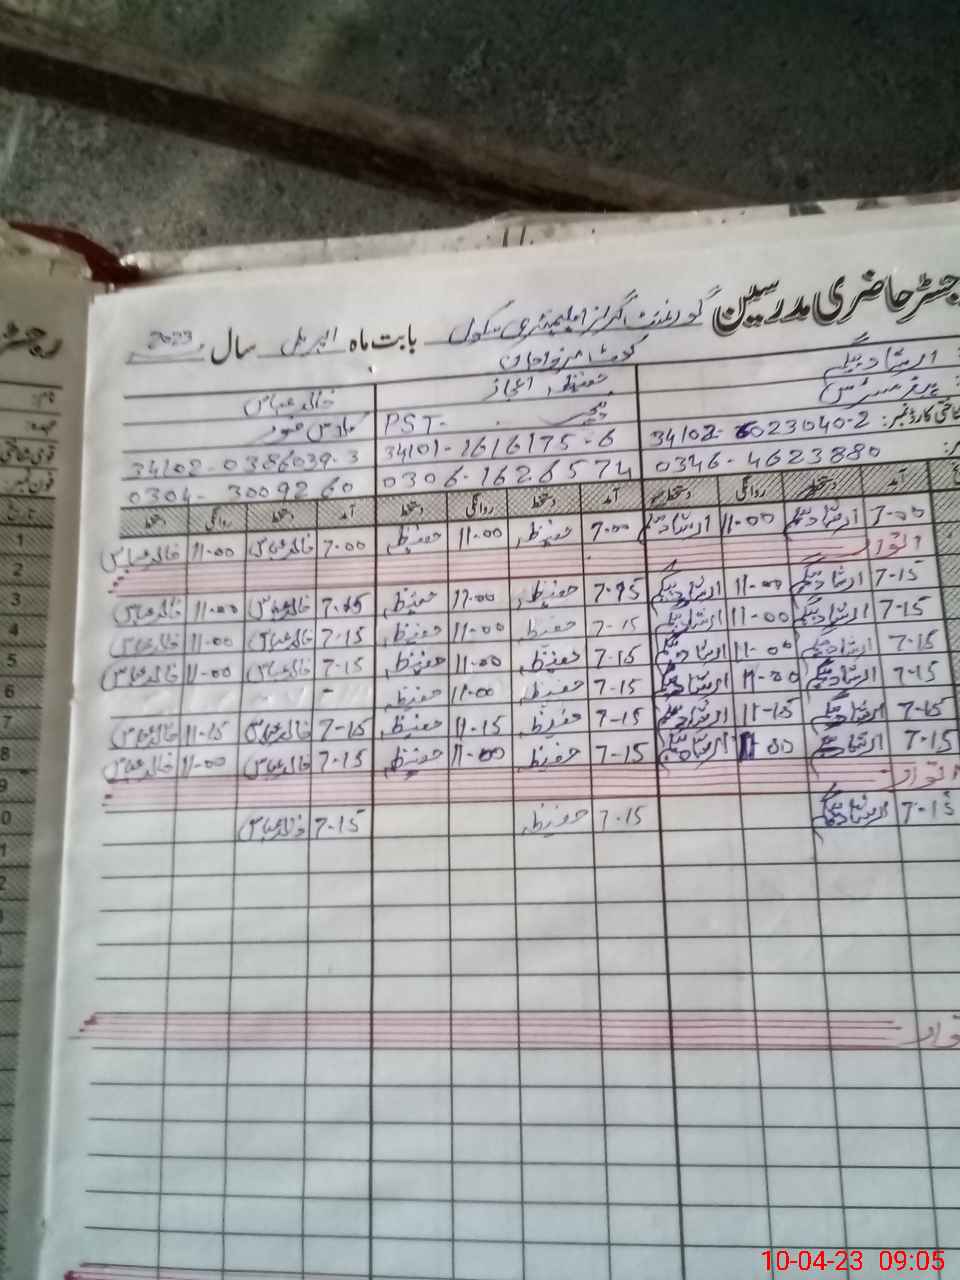 رجسٹر حاضری مدرسین گورنمنٹ گرلز ایلیمنٹری سکول بابت ماہ اپریل سال 2023
ارشاد بیگم حفیظہ اعجاز خالد عباس
PST-
شناختی کارڈ نمبر: 34102-6023040-2 34101-1616175-6 34102-0386039-3
0346-4623880 0306-1626574 0304-3009260
آمد دستخط روانگی دستخط آمد دستخط روانگی دستخط آمد دستخط روانگی دستخط
1 7-00 ارشاد بیگم 11-00 ارشاد بیگم 7-00 حفیظہ 11-00 حفیظہ 7-00 خالد عباس 11-00 خالد عباس
2 اتوار
3 7-15 ارشاد بیگم 11-00 ارشاد بیگم 7-15 حفیظہ 11-00 حفیظہ 7-15 خالد عباس 11-00 خالد عباس
4 7-15 ارشاد بیگم 11-00 ارشاد بیگم 7-15 حفیظہ 11-00 حفیظہ 7-15 خالد عباس 11-00 خالد عباس
5 7-15 ارشاد بیگم 11-00 ارشاد بیگم 7-15 حفیظہ 11-00 حفیظہ 7-15 خالد عباس 11-00 خالد عباس
6 7-15 ارشاد بیگم 11-00 ارشاد بیگم 7-15 حفیظہ 11-00 حفیظہ -
7 7-15 ارشاد بیگم 11-15 ارشاد بیگم 7-15 حفیظہ 11-15 حفیظہ 7-15 خالد عباس 11-15 خالد عباس
8 7-15 ارشاد بیگم 11-00 ارشاد بیگم 7-15 حفیظہ 11-00 حفیظہ 7-15 خالد عباس 11-00 خالد عباس
9 اتوار
0 7-15 ارشاد بیگم 7-15 حفیظہ 7-15 خالد عباس
1
2
توار
10-04-23 09:05